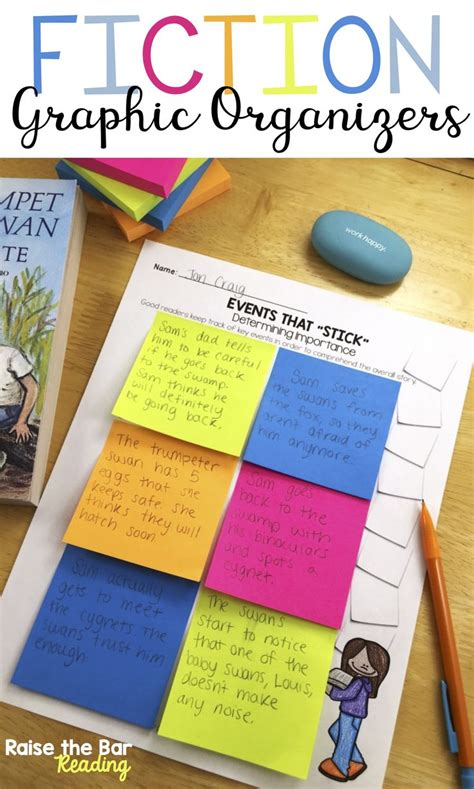 FICTION
Graphic Organizers
MPET
WAN
ITE
workhappy.
Name: Jan Craig
EVENTS THAT "STICK"
Determining Importance
Good readers keep track of key events in order to comprehend the overall story.
Sam's dad tells
him to be careful
if he goes back
to the swamp.
Sam thinks he
will definitely
be going back.
Sam saves
the swans from
the fox, so they
aren't afraid of
him anymore.
The trumpeter
swan has 5
eggs that she
keeps safe. She
thinks they will
hatch soon.
Sam goes
back to the
swamp with
his binoculars
and spots a
cygnet.
Sam actually
gets to meet
the cygnets. The
swans trust him
enough.
The swans
start to notice
that one of the
baby swans, Louis,
doesn't make
any noise.
Raise the Bar
Reading